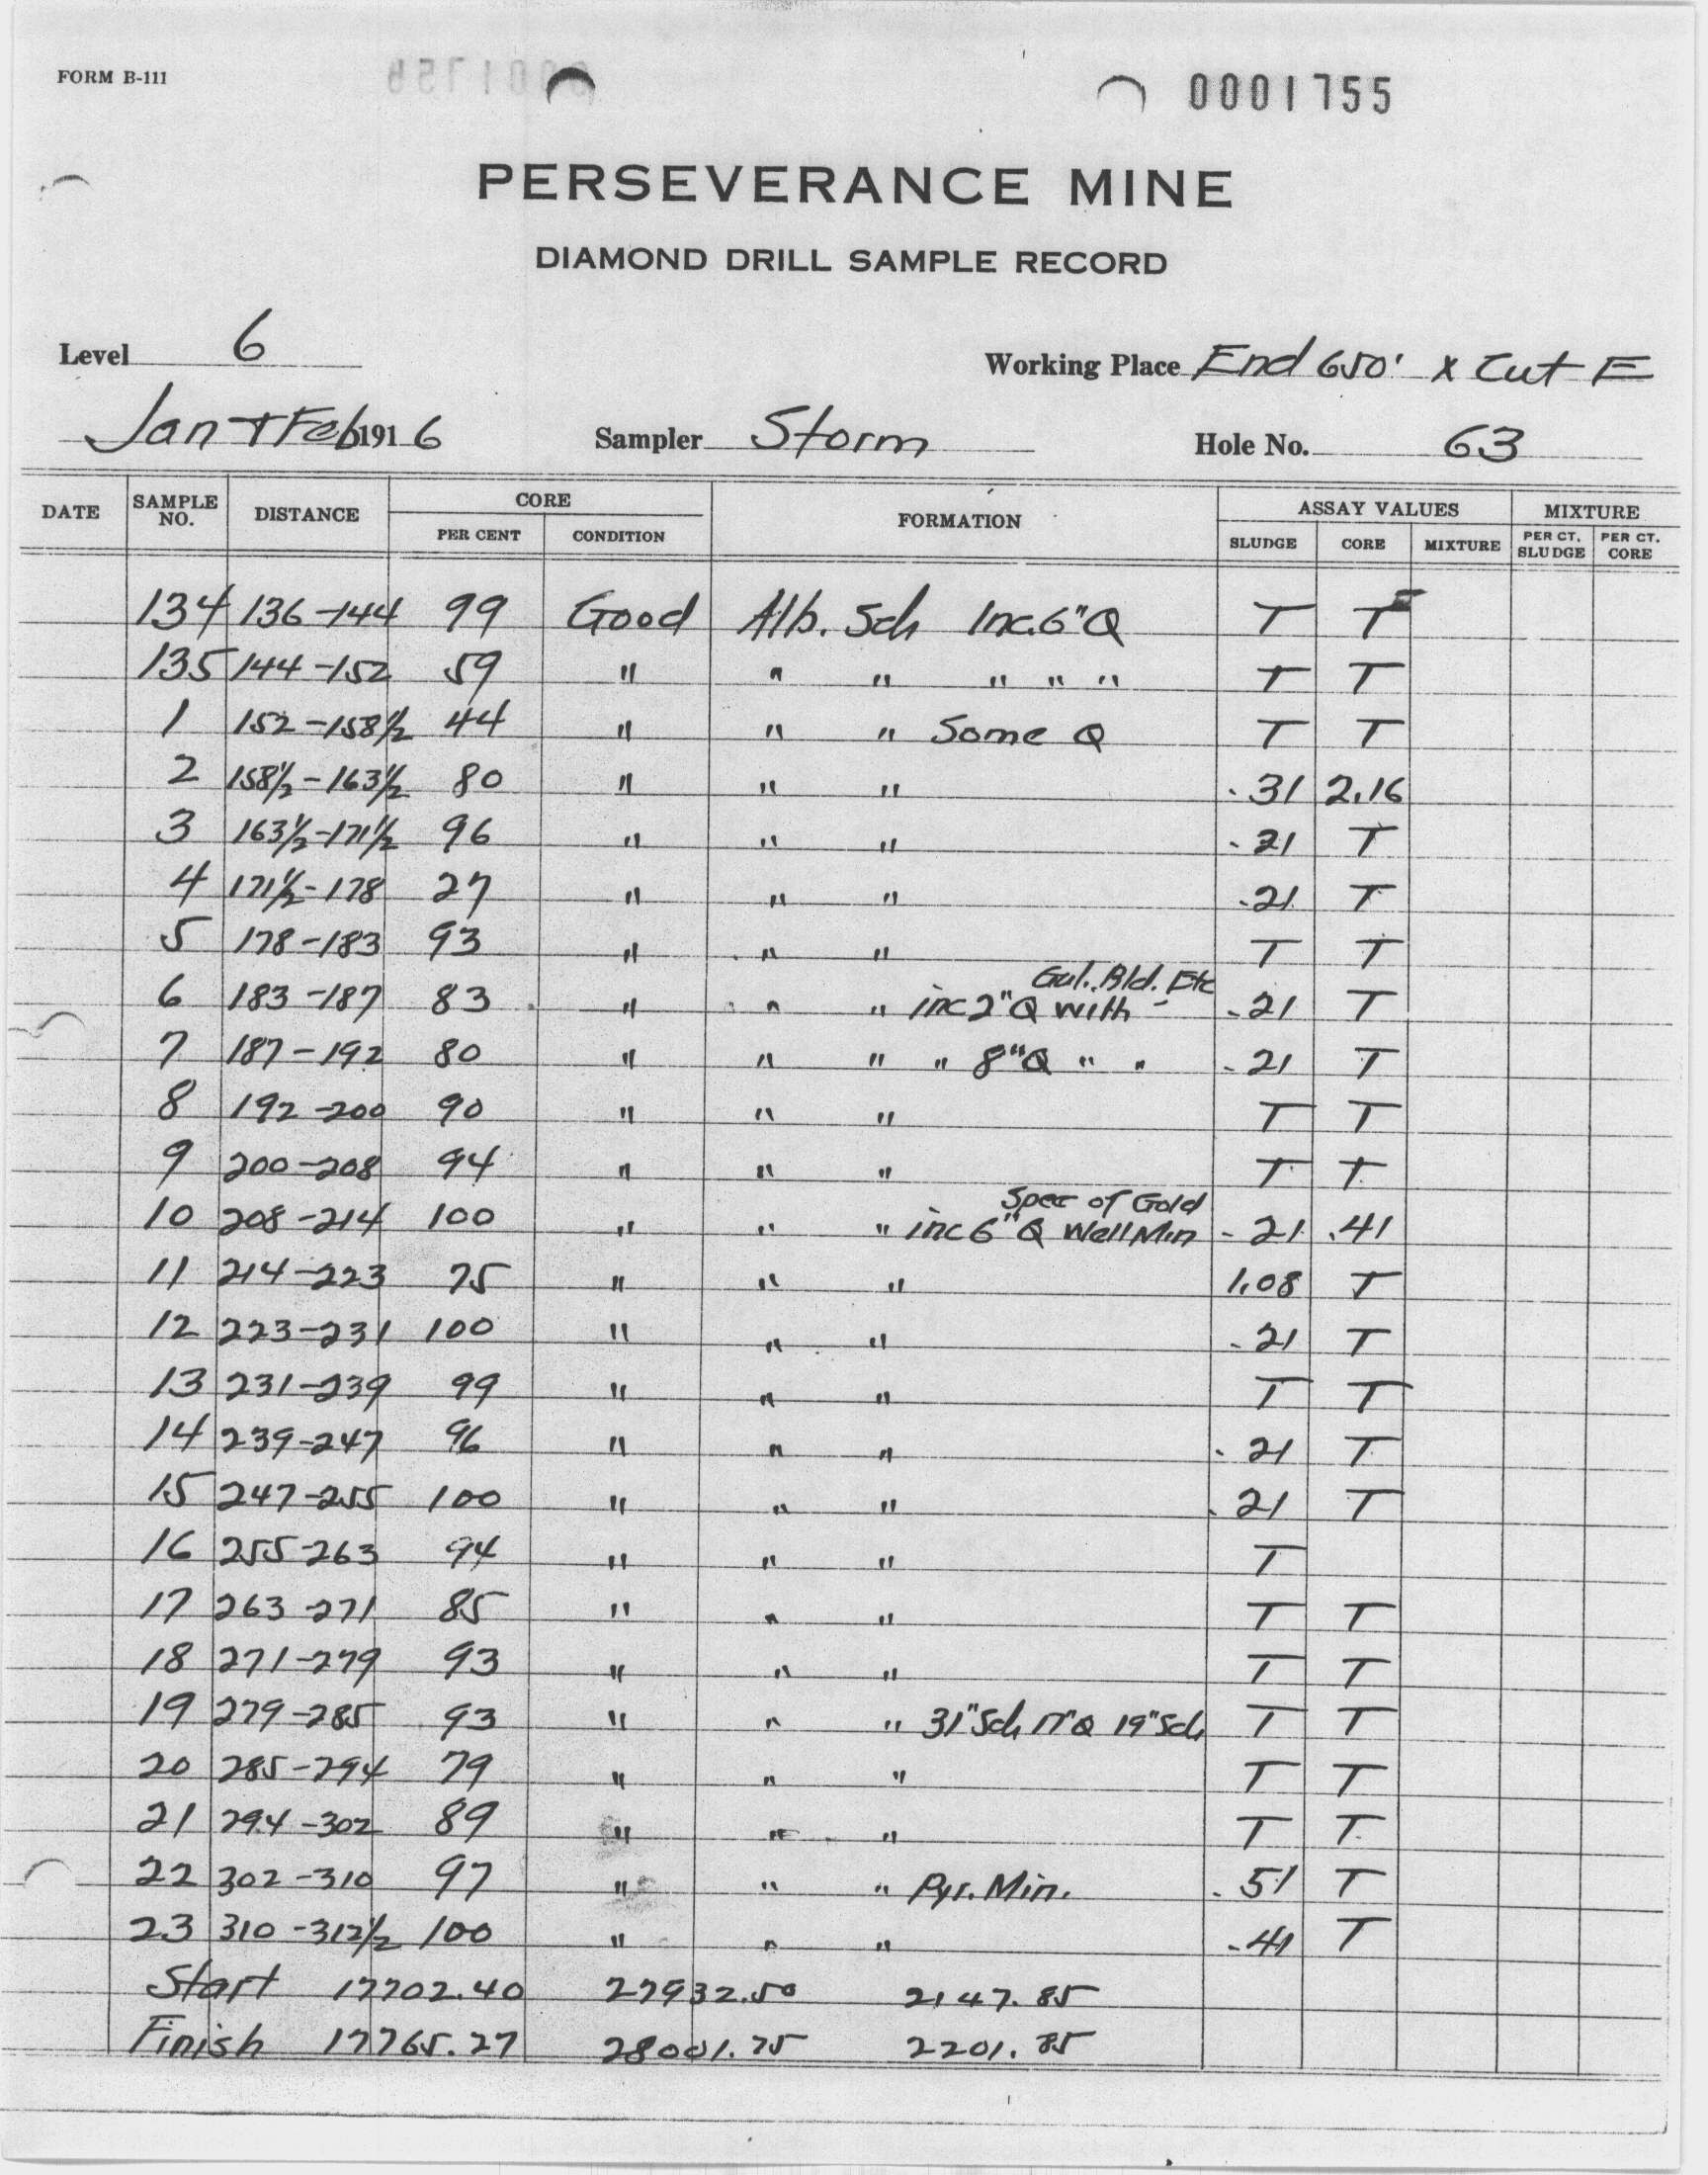 FORM B-111
0001755
PERSEVERANCE MINE
DIAMOND DRILL SAMPLE RECORD
Level 6 Working Place End 650' x Cut E
Jan + Feb 1916 Sampler Storm Hole No. 63
DATE SAMPLE NO. DISTANCE CORE PER CENT CONDITION FORMATION ASSAY VALUES SLUDGE CORE MIXTURE MIXTURE PER CT. SLUDGE PER CT. CORE
134 136-144 99 Good Alb. Sch Inc. 6" Q T T
135 144-152 59 " " " " " " T T
1 152-158½ 44 " " " Some Q T T
2 158½-163½ 80 " " " .31 2.16
3 163½-171½ 96 " " " .21 T
4 171½-178 27 " " " .21 T
5 178-183 93 " " " T T
Gal. Bld. Etc
6 183-187 83 " " " inc 2" Q with - .21 T
7 187-192 80 " " " " 8" Q " " .21 T
8 192-200 90 " " " T T
9 200-208 94 " " " T T
Spec of Gold
10 208-214 100 " " " inc 6" Q Well Min .21 .41
11 214-223 75 " " " 1.08 T
12 223-231 100 " " " .21 T
13 231-239 99 " " " T T
14 239-247 96 " " " .21 T
15 247-255 100 " " " .21 T
16 255-263 94 " " " T
17 263-271 85 " " " T T
18 271-279 93 " " " T T
19 279-285 93 " " " 31" Sch 17" Q 19" Sch T T
20 285-294 79 " " " T T
21 294-302 89 " " " T T
22 302-310 97 " " " Pyr. Min. .51 T
23 310-312½ 100 " " " .41 T
Start 17702.40 27932.50 2147.85
Finish 17765.27 28001.75 2201.85